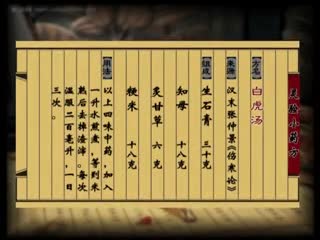 灵验小药方
【方名】
白虎汤
【来源】
汉末张仲景《伤寒论》
【组成】
生石膏 三十克
知母 十八克
炙甘草 六克
粳米 十八克
【用法】
以上四味中药，加入
一升水煎煮，等到米
熟后去掉渣滓。每次
温服二百毫升，一日
三次。